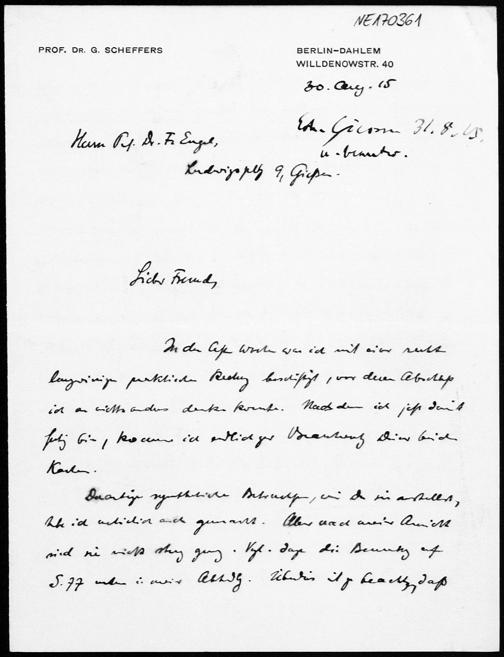 NE170361
PROF. DR. G. SCHEFFERS
BERLIN-DAHLEM
WILLDENOWSTR. 40
30. Aug. 15
Giessen 31. 8. 15.
Herrn Prof. Dr. Fr. Engel,
Ludwigsplatz 9, Gießen.
Lieber Freund,
In der Woche war ich mit einer recht
langwierigen praktischen beschäftigt, vor deren Abschluß
ich an nichts anderes denken konnte. Nachdem ich jetzt damit
fertig bin, komme ich endlich zur Beantwortung Deiner beiden
Karten.
Derartige synthetische Betrachtungen, wie Du sie anstellst,
habe ich natürlich auch gemacht. Aber nach meiner Ansicht
sind sie nicht streng genug. Vgl. dazu die Bemerkung auf
S. 77 unten in meiner Abhdlg. Überdies ist zu beachten, daß